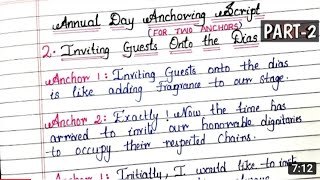 Annual Day Anchoring Script
(FOR TWO ANCHORS)
PART-2
2. Inviting Guests Onto the Dias
Anchor 1: Inviting Guests onto the dias
is like adding fragrance to our stage.
Anchor 2: Exactly! Now the time has
arrived to invite our honorable dignitaries
to occupy their respected Chairs.
Anchor 1: Initially, I would like to
7:12